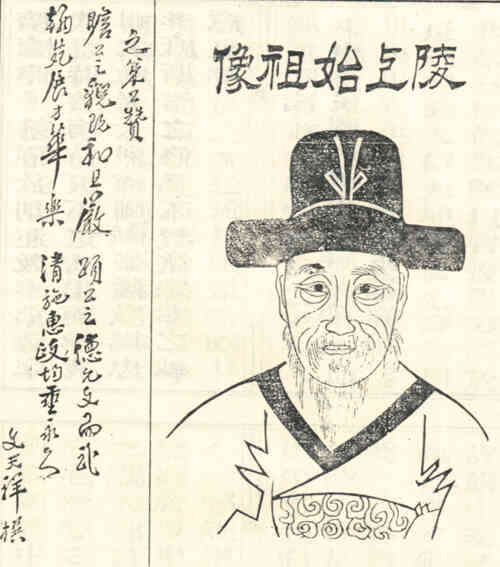 陵上始祖像
之策公贊
瞻公之貌既和且嚴 公之德允文而武
翰苑展才華樂清施惠政均垂永久
文天祥撰